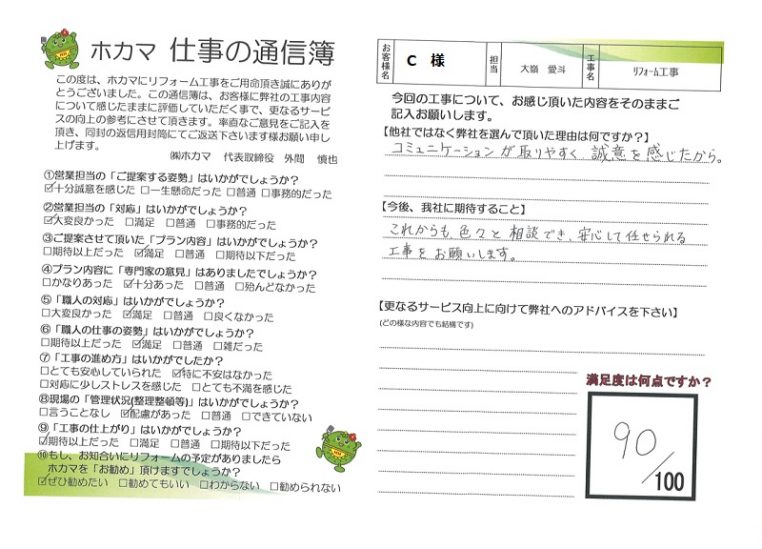 ホカマ 仕事の通信簿
この度は、ホカマにリフォーム工事をご用命頂き誠にありが
とうございました。この通信簿は、お客様に弊社の工事内容
について感じたままに評価していただく事で、更なるサービ
スの向上の参考にさせて頂きます。率直なご意見をご記入を
頂き、同封の返信用封筒にてご返送下さいます様お願い申し
上げます。
㈱ホカマ 代表取締役 外間 慎也
①営業担当の「ご提案する姿勢」はいかがでしょうか?
☑十分誠意を感じた □一生懸命だった □普通 □事務的だった
②営業担当の「対応」はいかがでしょうか?
☑大変良かった □満足 □普通 □事務的だった
③ご提案させて頂いた「プラン内容」はいかがでしょうか?
□期待以上だった ☑満足 □普通 □期待以下だった
④プラン内容に「専門家の意見」はありましたでしょうか?
□かなりあった ☑十分あった □普通 □殆んどなかった
⑤「職人の対応」はいかがでしょうか?
□大変良かった ☑満足 □普通 □良くなかった
⑥「職人の仕事の姿勢」はいかがでしょうか?
□期待以上だった ☑満足 □普通 □雑だった
⑦「工事の進め方」はいかがでしたか?
□とても安心していられた ☑特に不安はなかった
□対応に少しストレスを感じた □とても不満を感じた
⑧現場の「管理状況(整理整頓等)」はいかがでしょうか?
□言うことなし ☑配慮があった □普通 □できていない
⑨「工事の仕上がり」はいかがでしょうか?
☑期待以上だった □満足 □普通 □期待以下だった
⑩もし、お知合いにリフォームの予定がありましたら
ホカマを「お勧め」頂けますでしょうか?
☑ぜひ勧めたい □勧めてもいい □わからない □勧められない
お客様名 C 様 担当 大嶺 愛斗 工事名 リフォーム工事
今回の工事について、お感じ頂いた内容をそのままご
記入お願いします。
【他社ではなく弊社を選んで頂いた理由は何ですか?】
コミュニケーションが取りやすく、誠意を感じたから。
【今後、我社に期待すること】
これからも色々と相談でき、安心して任せられる
工事をお願いします。
【更なるサービス向上に向けて弊社へのアドバイスを下さい】
(どの様な内容でも結構です)
満足度は何点ですか?
90/100